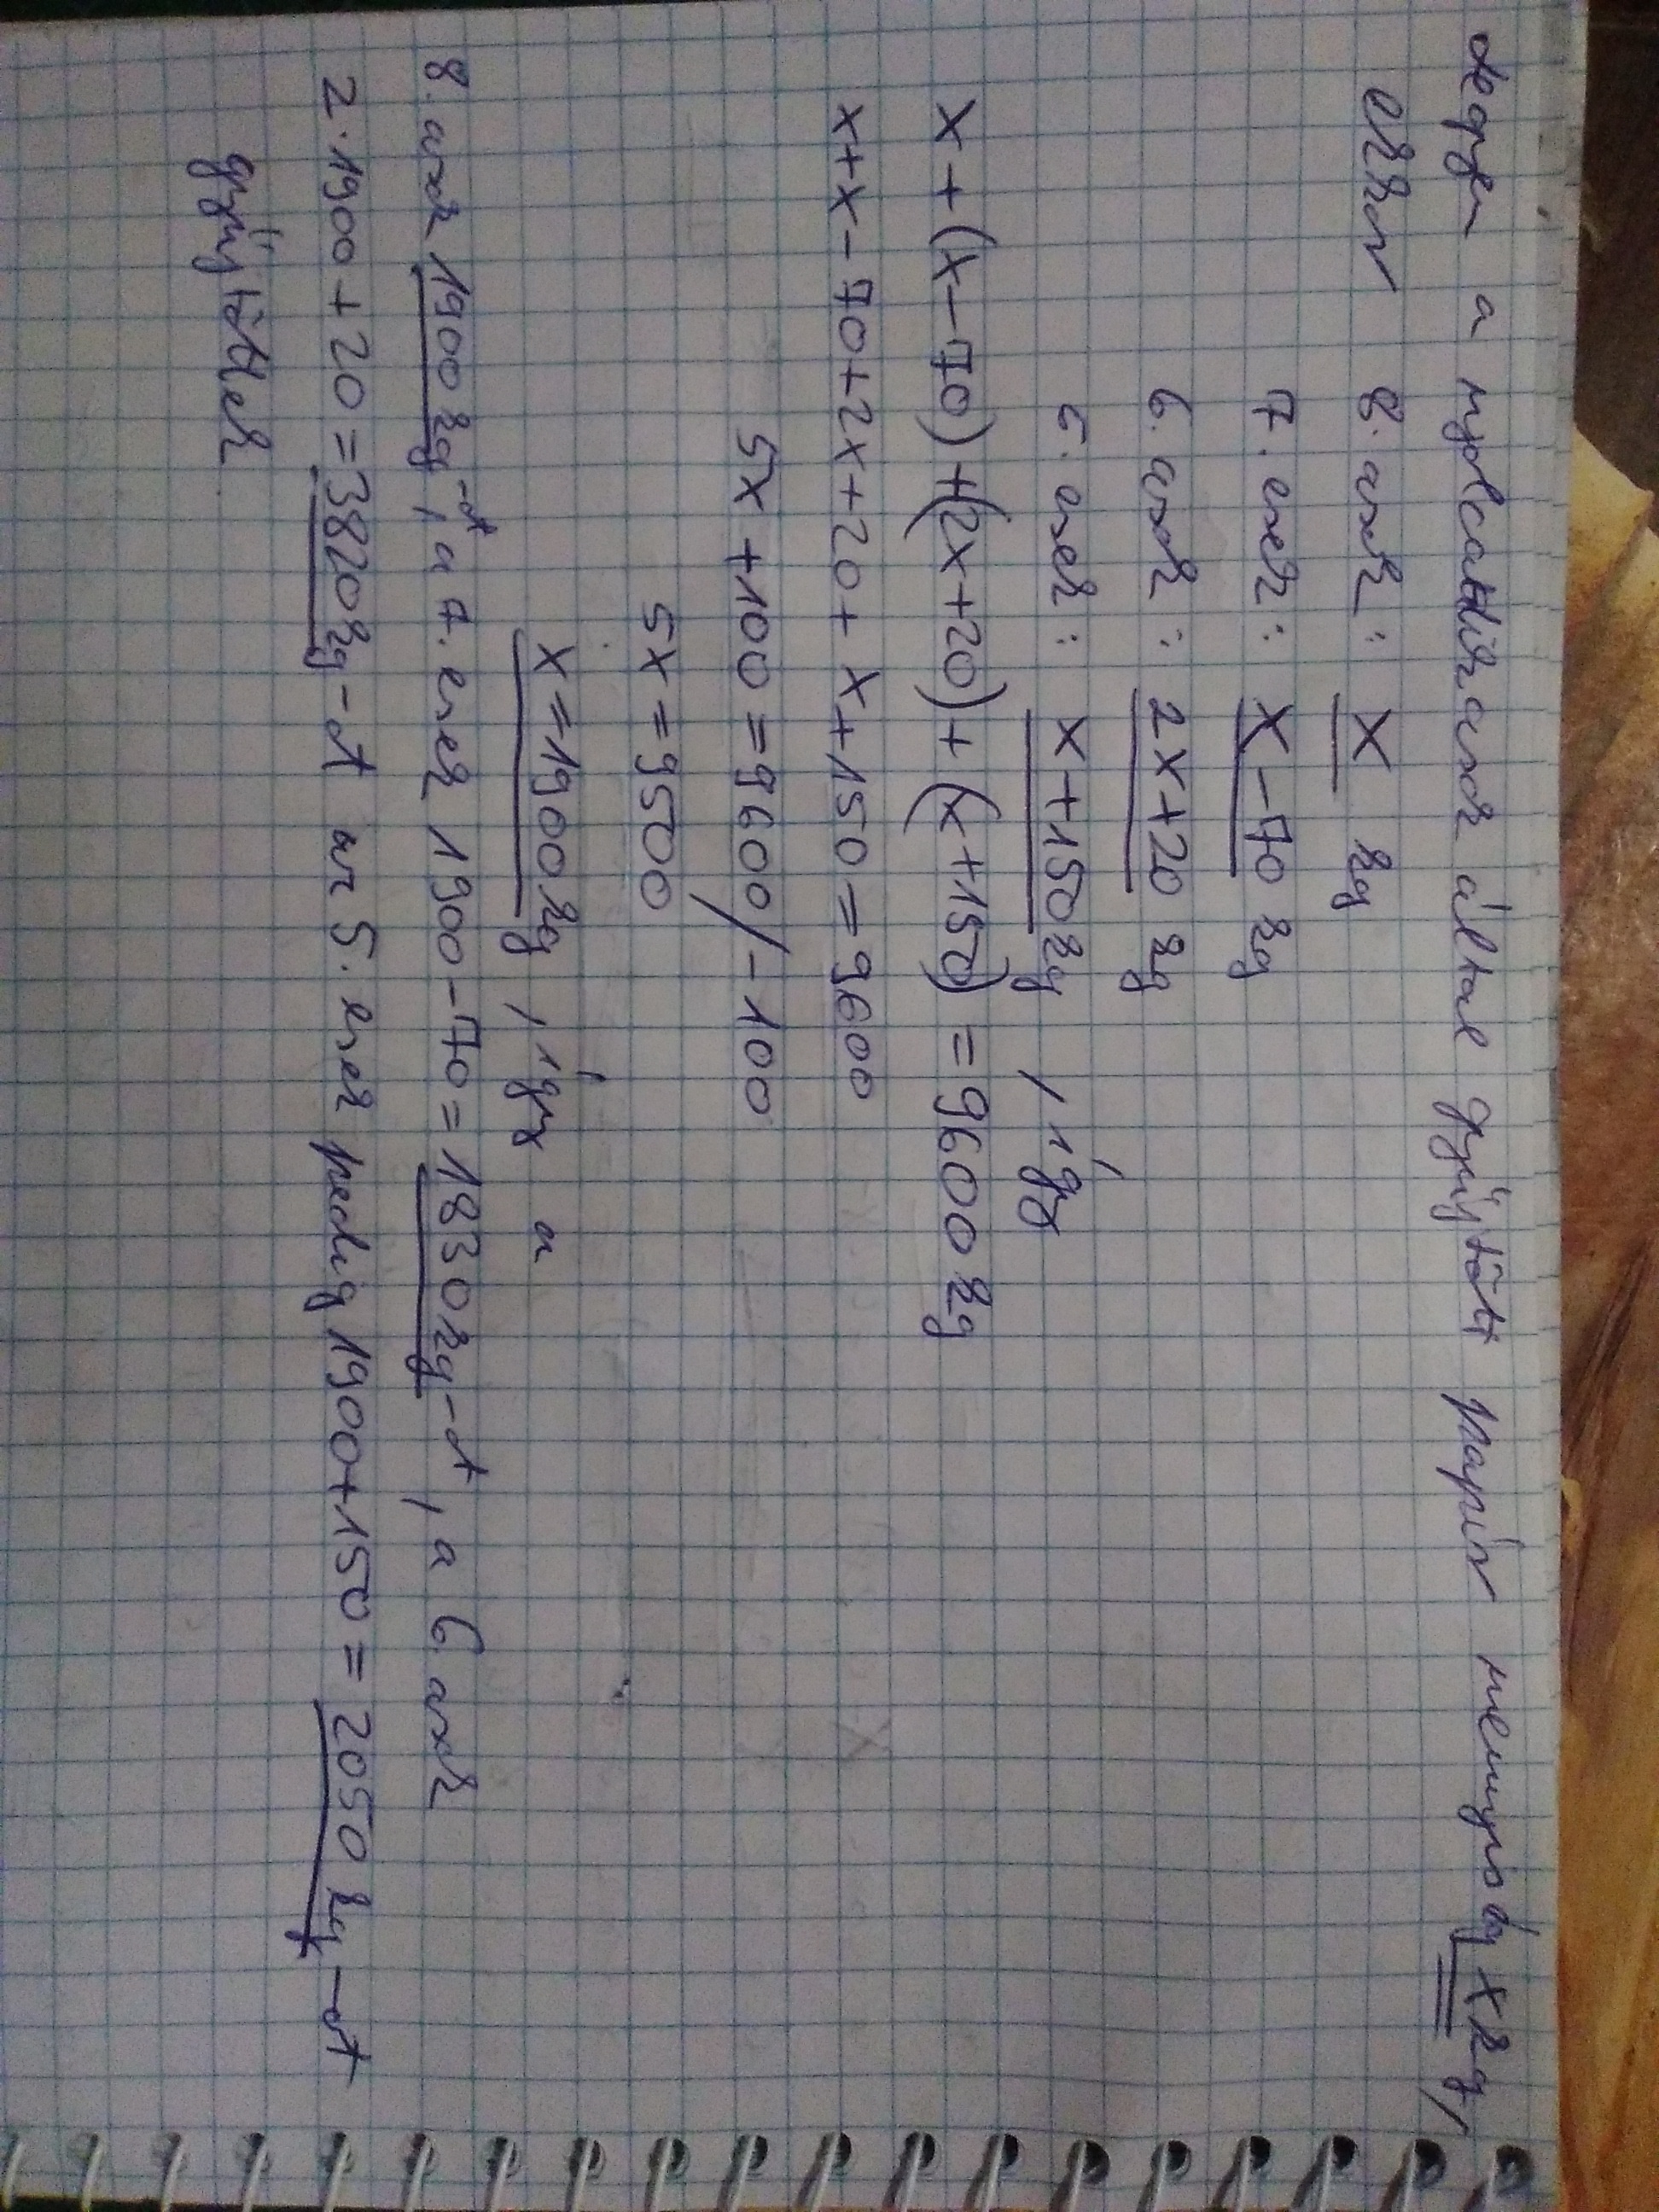 legyen a nyolcadikasok által gyűjtött papír mennyiség x kg,
ekkor 8. osok: x kg
7. esek: x-70 kg
6. osok: 2x+20 kg
5. esek: x+150 kg, így
x + (x-70) + (2x+20) + (x+150) = 9600 kg
x+x-70+2x+20+ x+150=9600
5x +100 = 9600 /-100
5x = 9500
x=1900 kg, így a
8. osok 1900 kg-ot, a 7. esek 1900-70=1830 kg-ot, a 6 osok
2·1900+20=3820kg-ot az 5. esek pedig 1900+150=2050 kg-ot
gyűjtöttek.